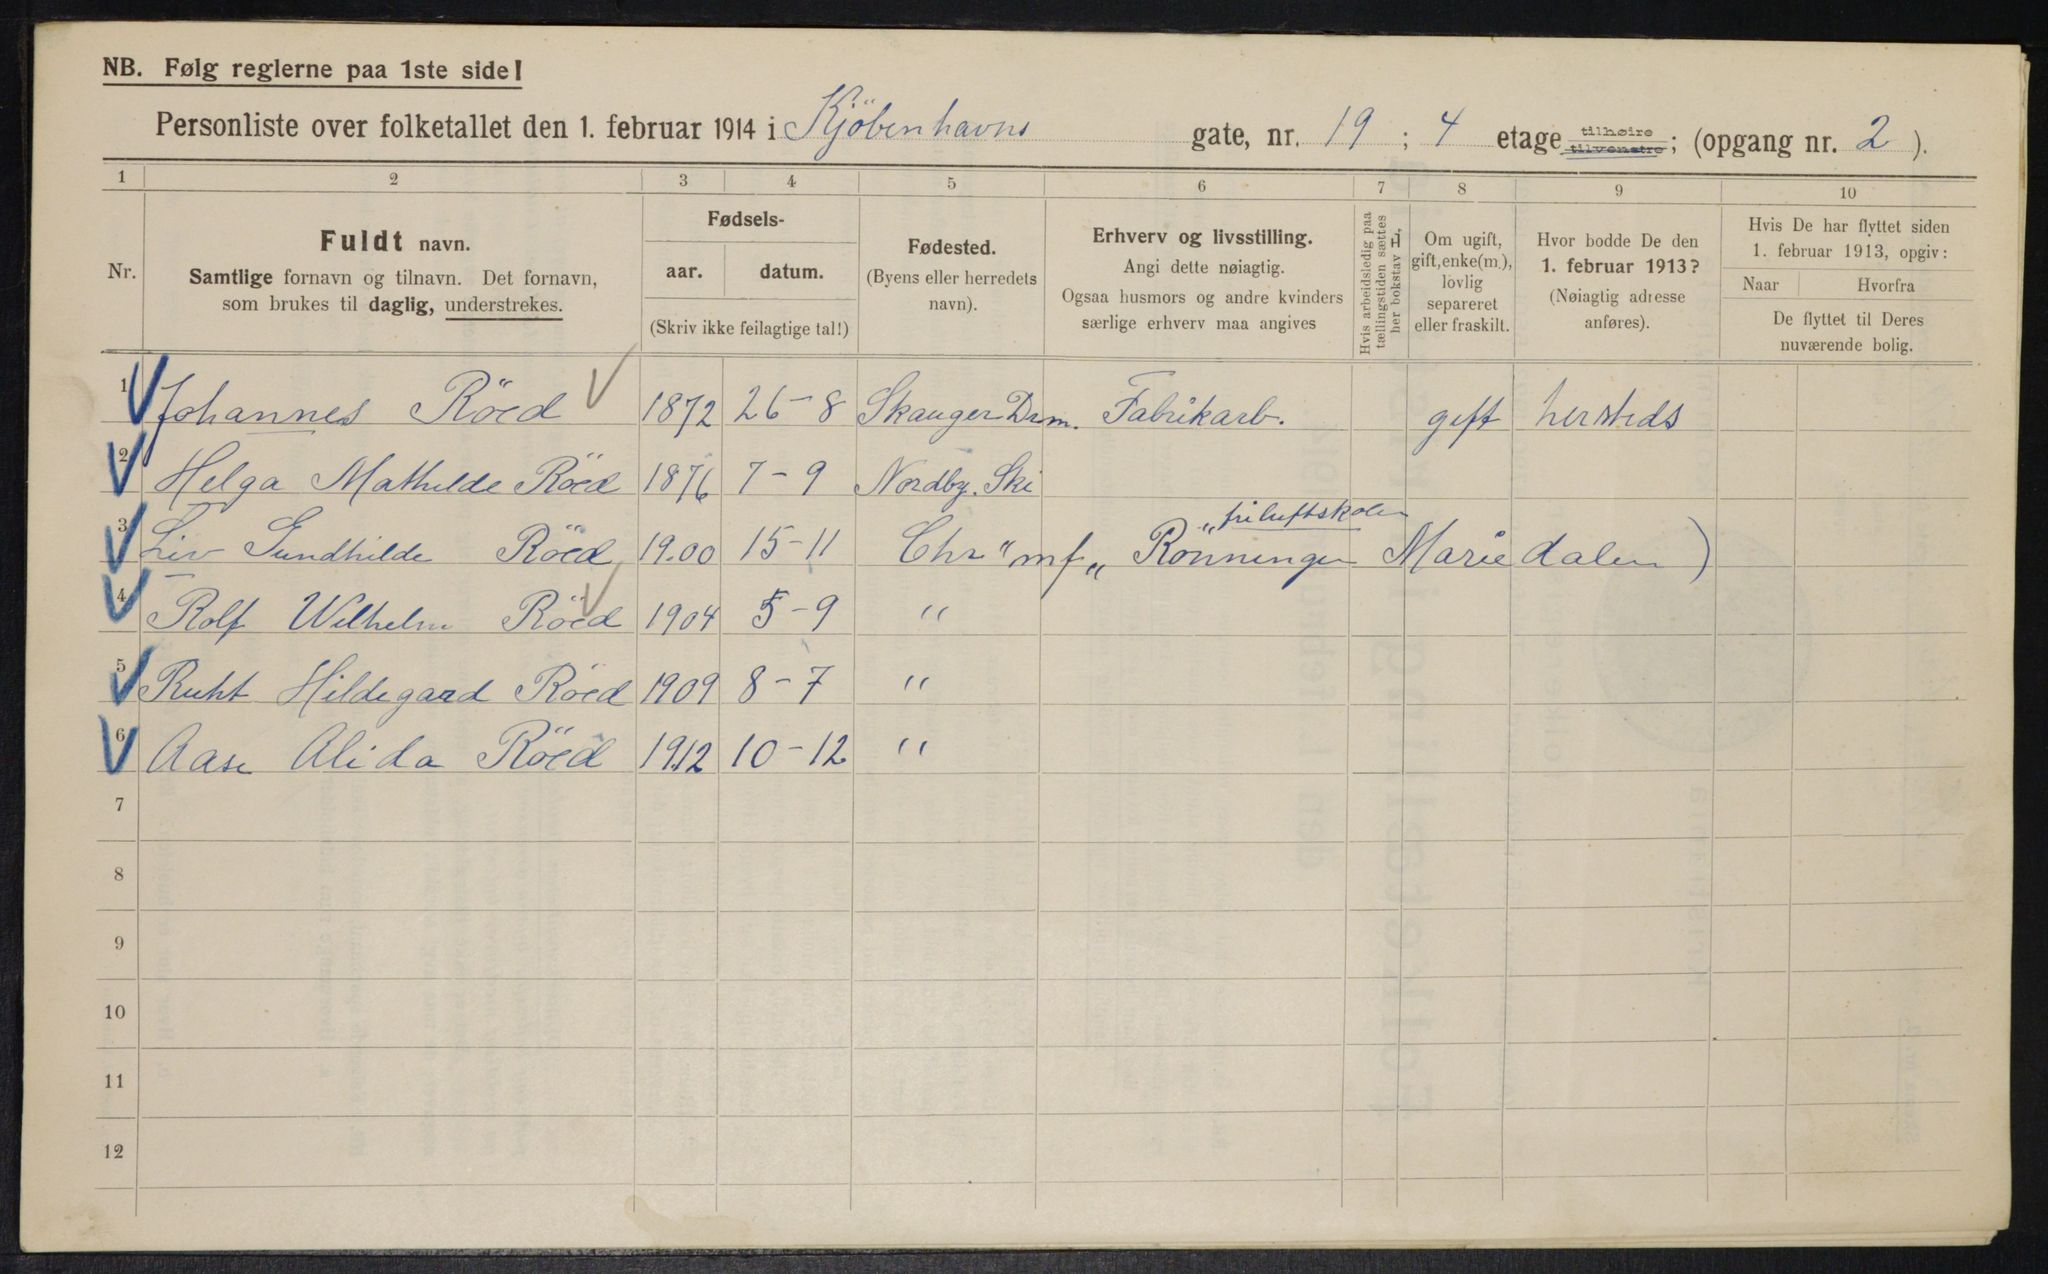 NB. Følg reglerne paa 1ste side!
Personliste over folketallet den 1. februar 1914 i Kjöbenhavns gate, nr. 19 ; 4 etage tilhøire tilvenstre ; (opgang nr. 2 ).
1 2 3 4 5 6 7 8 9 10
Nr.
Fuldt navn.
Samtlige fornavn og tilnavn. Det fornavn,
som brukes til daglig, understrekes.
Fødsels-
aar. datum.
(Skriv ikke feilagtige tal!)
Fødested.
(Byens eller herredets
navn).
Erhverv og livsstilling.
Angi dette nøiagtig.
Ogsaa husmors og andre kvinders
særlige erhverv maa angives
Hvis arbeidsledig paa
tællingstiden sættes
her bokstav
Om ugift,
gift, enke(m.),
lovlig
separeret
eller fraskilt.
Hvor bodde De den
1. februar 1913?
(Nøiagtig adresse
anføres).
Hvis De har flyttet siden
1. februar 1913, opgiv:
Naar Hvorfra
De flyttet til Deres
nuværende bolig.
1 Johannes Röed 1872 26-8 Skauger Drm. Fabrikarb. gift hersteds
2 Helga Mathilde Röed 1876 7-9 Nordby. Ski
"friluftskolen
3 Liv Gundhilde Röed 1900 15-11 Chr "mf" Rönningen Mariedalen)
4 Rolf Wilhelm Röed 1904 5-9 "
5 Ruht Hildegard Röed 1909 8-7 "
6 Aase Alida Röed 1912 10-12 "
7
8
9
10
11
12